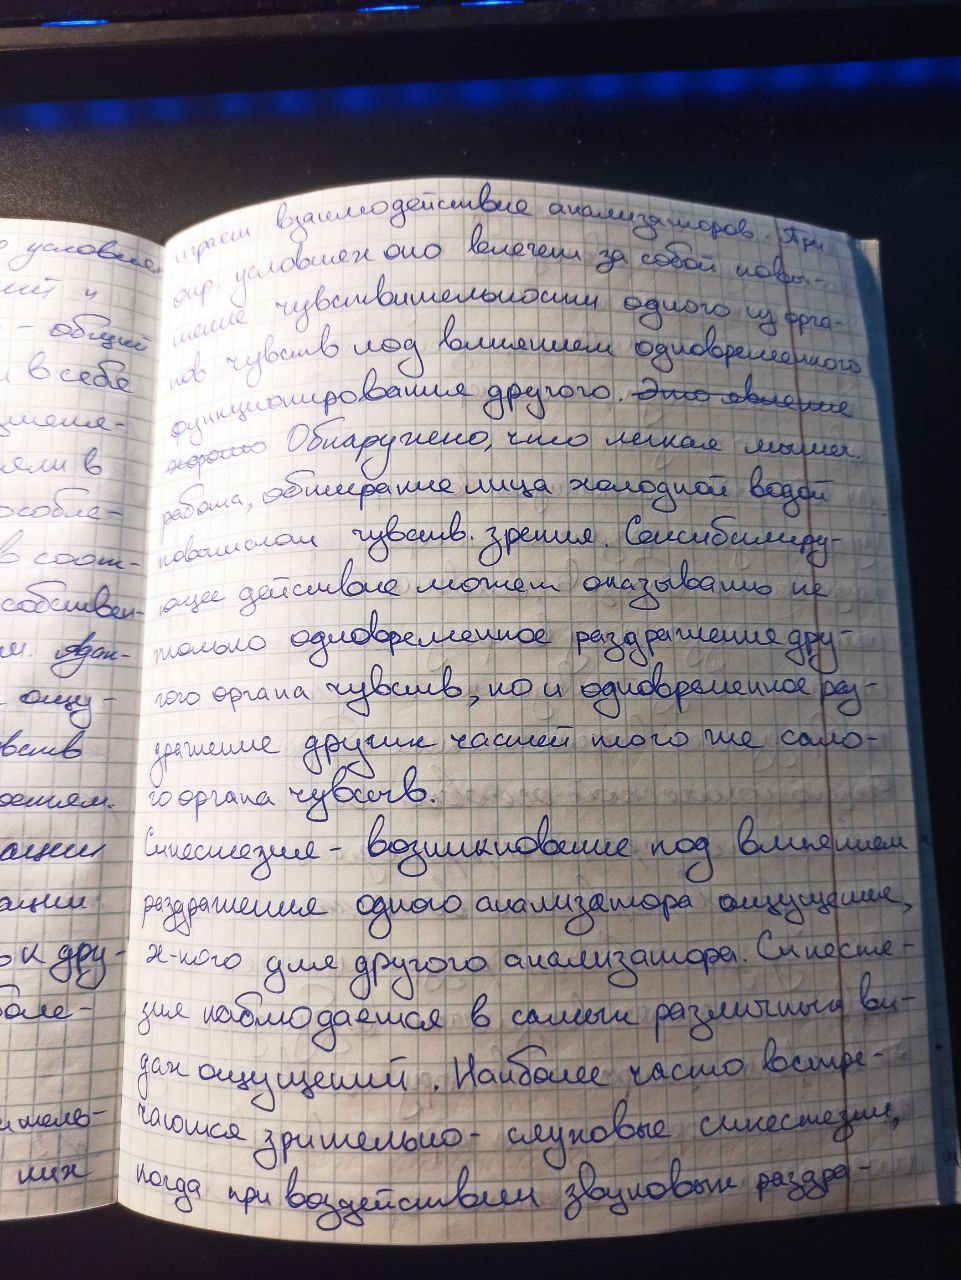 о условия
ний и
- общий
и в себе
яли в
особле-
в соот-
собствен-
ощу-
вств
ации
ации
к дру-
боле-
них
играет взаимодействие анализаторов. При
опр. условиях оно влечет за собой повы-
шение чувствительности одного из орга-
нов чувств под влиянием одновременного
функционирования другого. Это явление
хорошо Обнаружено, что легкая мышеч.
работа, обтирание лица холодной водой
повысили чувств. зрения. Сенсибилизиру-
ющее действие может оказывать не
только одновременное раздражение дру-
гого органа чувств, но и одновременное раз-
дражение других частей того же само-
го органа чувств.
Синестезия - возникновение под влиянием
раздражения одного анализатора ощущения,
х-ного для другого анализатора. Синесте-
зия наблюдается в самых различных ви-
дах ощущений. Наиболее часто встре-
чаются зрительно-слуховые синестезии,
когда при воздействии звуковых раздра-